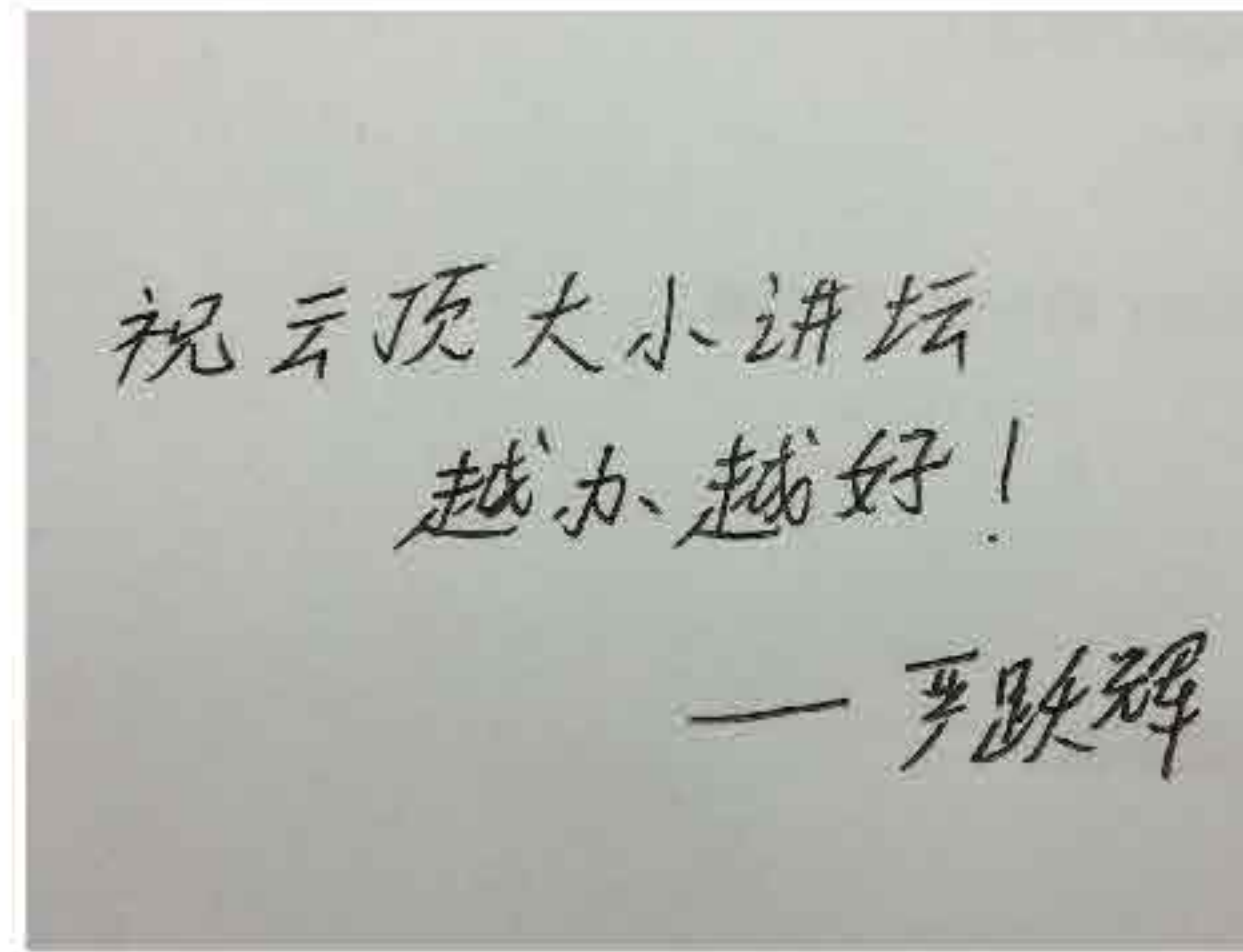 祝云顶大小讲坛
越办越好！
——严跃辉